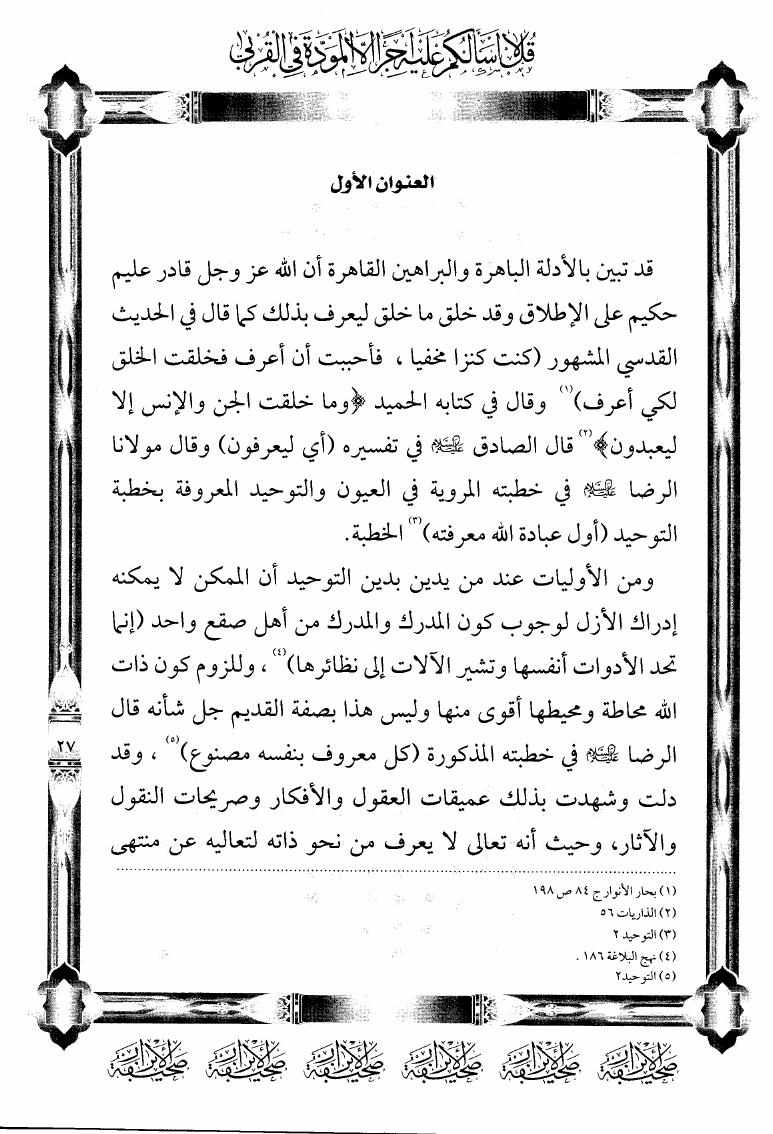 قل لا أسألكم عليه أجرا إلا المودة في القربى
العنوان الأول
قد تبين بالأدلة الباهرة والبراهين القاهرة أن الله عز وجل قادر عليم
حكيم على الإطلاق وقد خلق ما خلق ليعرف بذلك كما قال في الحديث
القدسي المشهور (كنت كنزا مخفيا ، فأحببت أن أعرف فخلقت الخلق
لكي أعرف)(١) وقال في كتابه الحميد ﴿وما خلقت الجن والإنس إلا
ليعبدون﴾(٢) قال الصادق عليه السلام في تفسيره (أي ليعرفون) وقال مولانا
الرضا عليه السلام في خطبته المروية في العيون والتوحيد المعروفة بخطبة
التوحيد (أول عبادة الله معرفته)(٣) الخطبة.
ومن الأوليات عند من يدين بدين التوحيد أن الممكن لا يمكنه
إدراك الأزل لوجوب كون المدرك والمدرك من أهل صقع واحد (إنما
تحد الأدوات أنفسها وتشير الآلات إلى نظائرها)(٤) ، وللزوم كون ذات
الله محاطة ومحيطها أقوى منها وليس هذا بصفة القديم جل شأنه قال
الرضا عليه السلام في خطبته المذكورة (كل معروف بنفسه مصنوع)(٥) ، وقد
دلت وشهدت بذلك عميقات العقول والأفكار وصريحات النقول
والآثار، وحيث أنه تعالى لا يعرف من نحو ذاته لتعاليه عن منتهى
(١) بحار الأنوار ج ٨٤ ص ١٩٨
(٢) الذاريات ٥٦
(٣) التوحيد ٢
(٤) نهج البلاغة ١٨٦ .
(٥) التوحيد٢
٢٧
صحيفة الأبرار صحيفة الأبرار صحيفة الأبرار صحيفة الأبرار صحيفة الأبرار صحيفة الأبرار